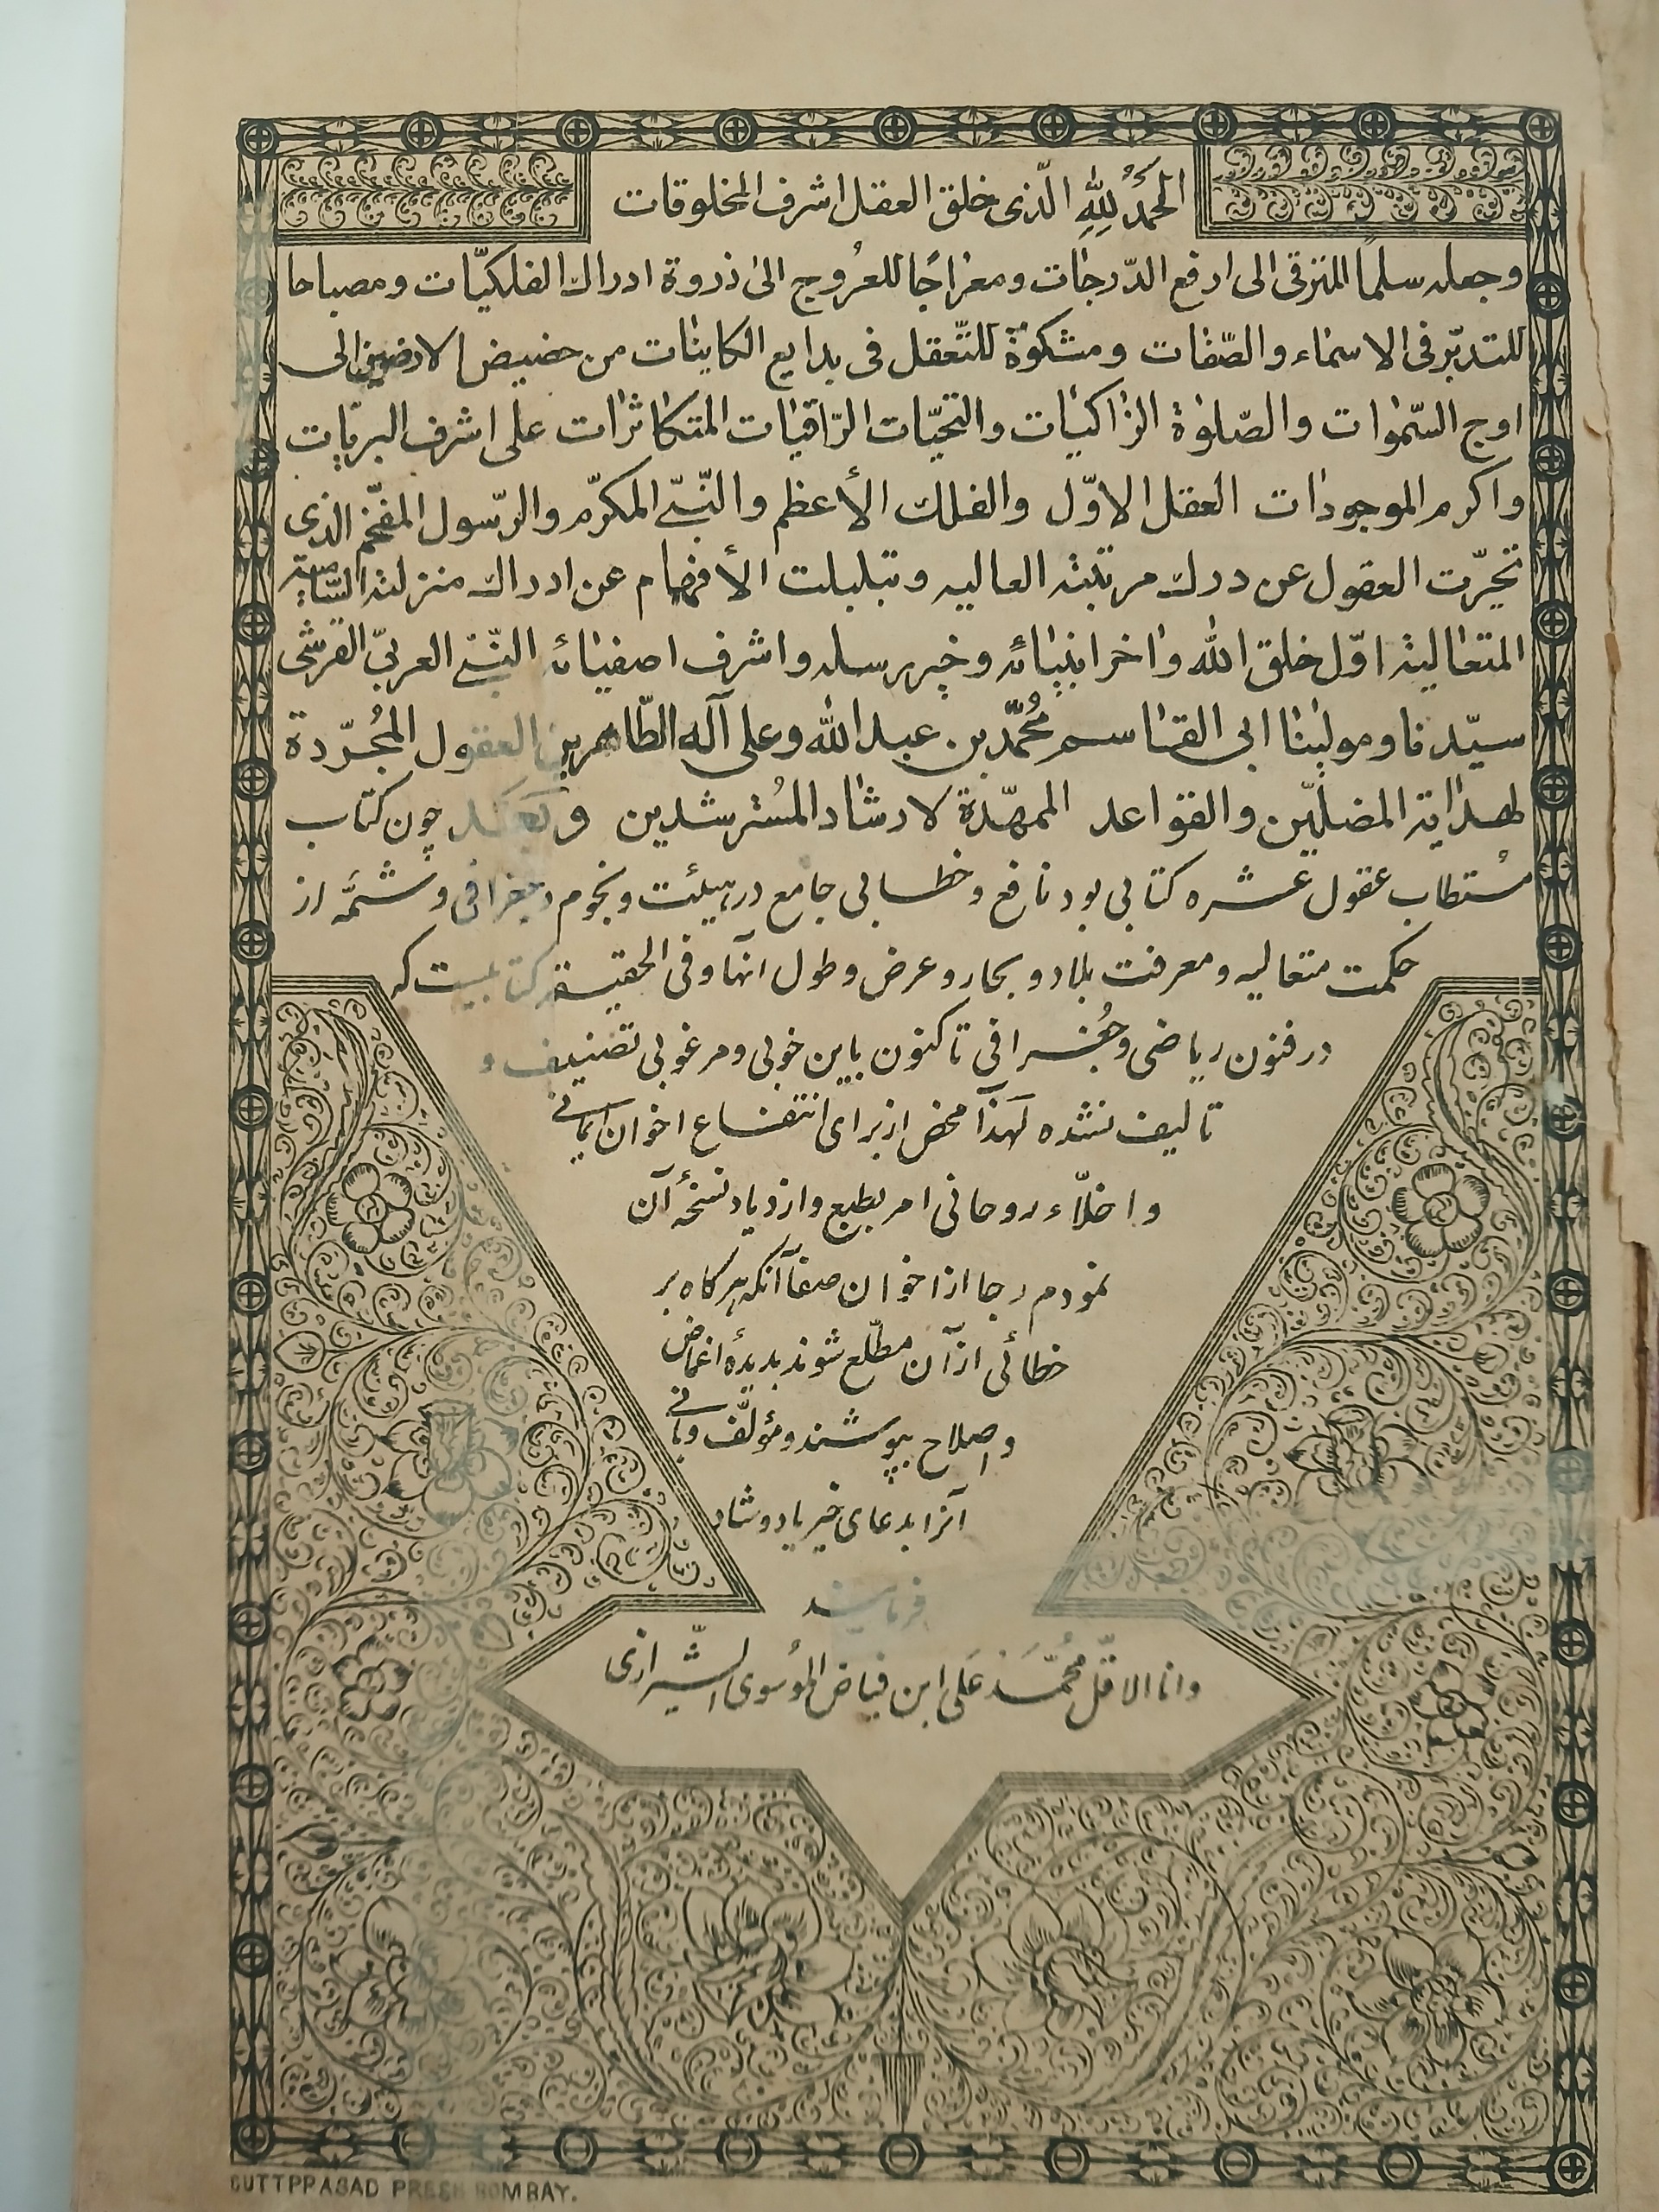 الحمدُ للهِ الّذی خلق العقل اشرف المخلوقات
وجعله سلمًا للترقی الی ارفع الدّرجات ومعراجًا للعُروج الی ذروة ادراك الفلكیّات ومصباحا
للتدبّر فی الاسماء والصّفات ومشكوة للتّعقل فی بدایع الكاینات من حضیض الارضین الی
اوج السّموات والصّلوة الزاكیات والتحیّات الرّاقیات المتكاثرات علی اشرف البریّات
واكرم الموجودات العقل الاوّل والفلك الأعظم والنّبیّ المكرّم والرّسول المفخّم الذی
تحیّرت العقول عن درك مرتبته العالیه وتبلبلت الأفهام عن ادراك منزلته السّامیة
المتعالیة اوّل خلق الله واخر انبیائه وخیر رسله واشرف اصفیائه النّبیّ العربیّ القرشی
سیّدنا ومولینا ابی القاسم محُمّد بن عبد الله وعلی آله الطّاهرین العقول المجُرّدة
لهدایة المضلیّن والقواعد الممهّدة لارشاد المسُترشدین وبَعَد چون كتاب
مُستطاب عقول عشره كتابی بود نافع وخطابی جامع در هیئت ونجوم وجغرافی وشمّه از
حكمت متعالیه ومعرفت بلاد وبحار وعرض وطول آنها وفی الحقیقة كتابیست كه
در فنون ریاضی وجُغرافی تاكنون باین خوبی ومرغوبی تصنیف و
تالیف نشده لهَذا محض از برای انتفاع اخوان ایمانی
واخلّاء روحانی امر بطبع وازدیاد نسخهٔ آن
نمودم رجا از اخوان صفا آنكه هرگاه بر
خطائی از آن مطّلع شوند بدیدهٔ اغماض
واصلاح بپوشند ومؤلّف وبانی
آنرا بدعای خیر یاد وشاد
فرمایند
وانا الاقلّ محُمّد عَلی ابن فیاض الموُسوی الشّیرازی
DUTTPRASAD PRESS BOMBAY.